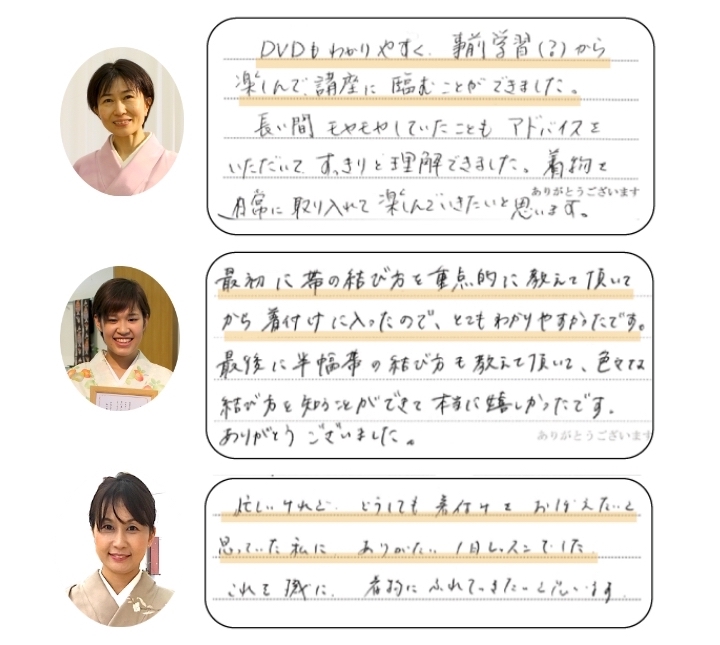 DVDもわかりやすく、事前学習(?)から
楽しんで講座に臨むことができました。
長い間モヤモヤしていたこともアドバイスを
いただいて すっきりと理解できました。着物を
ありがとうございます
日常に取り入れて楽しんでいきたいと思います。
最初に帯の結び方を重点的に教えて頂いて
から着付けに入ったので、とてもわかりやすかったです。
最後に半幅帯の結び方も教えて頂いて、色々な
結び方を知ることができて本当に嬉しかったです。
ありがとうございました。
ありがとうございます
忙しいけれど、どうしても着付けをおぼえたいと
思っていた私に ありがたい 1日レッスンでした。
これを機に、着物にふれていきたいと思います。